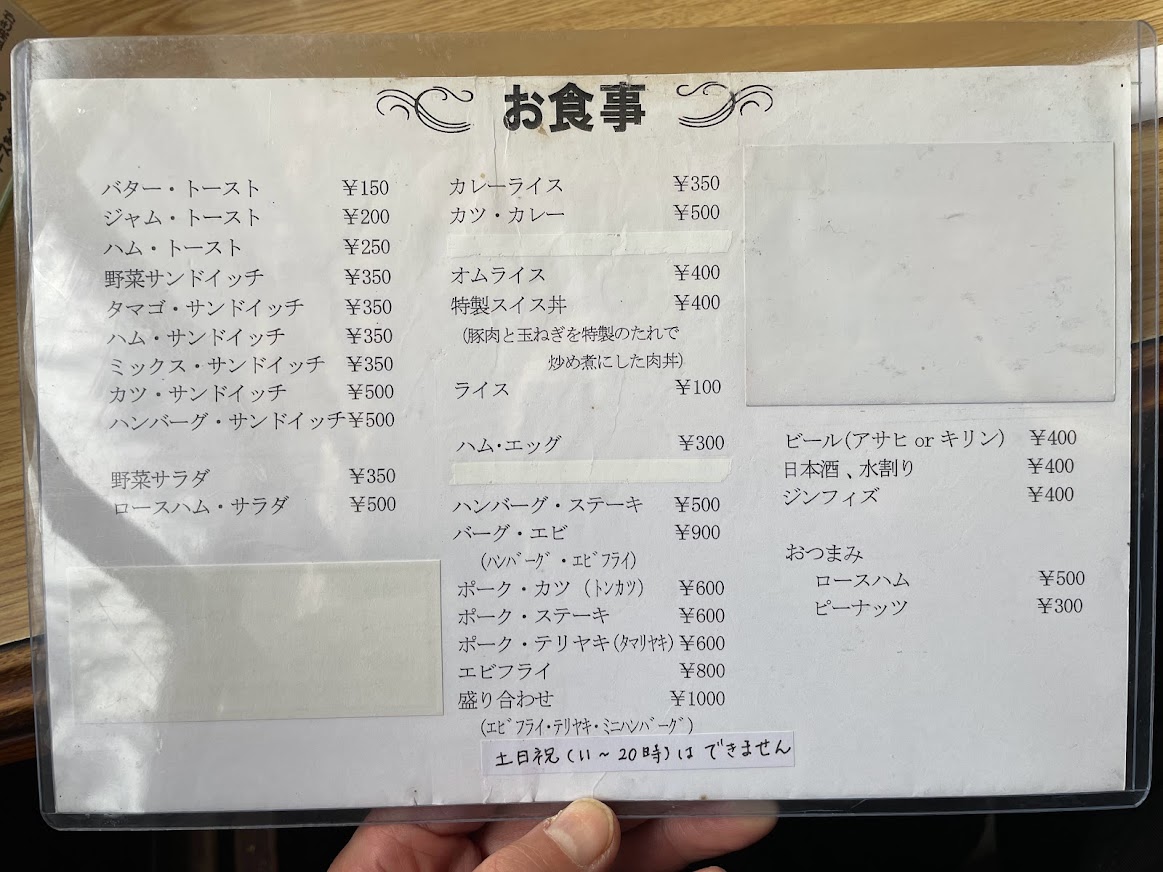 お食事
バター・トースト ¥150
ジャム・トースト ¥200
ハム・トースト ¥250
野菜サンドイッチ ¥350
タマゴ・サンドイッチ ¥350
ハム・サンドイッチ ¥350
ミックス・サンドイッチ ¥350
カツ・サンドイッチ ¥500
ハンバーグ・サンドイッチ ¥500
野菜サラダ ¥350
ロースハム・サラダ ¥500
カレーライス ¥350
カツ・カレー ¥500
オムライス ¥400
特製スイス丼 ¥400
(豚肉と玉ねぎを特製のたれで
炒め煮にした肉丼)
ライス ¥100
ハム・エッグ ¥300
ハンバーグ・ステーキ ¥500
バーグ・エビ ¥900
(ﾊﾝﾊﾞｰｸﾞ・ｴﾋﾞﾌﾗｲ)
ポーク・カツ (ﾄﾝｶﾂ) ¥600
ポーク・ステーキ ¥600
ポーク・テリヤキ(ﾀﾏﾘﾔｷ) ¥600
エビフライ ¥800
盛り合わせ ¥1000
(ｴﾋﾞﾌﾗｲ・ﾃﾘﾔｷ・ﾐﾆﾊﾝﾊﾞｰｸﾞ)
土日祝(11〜20時)は できません
ビール(アサヒ or キリン) ¥400
日本酒、水割り ¥400
ジンフィズ ¥400
おつまみ
ロースハム ¥500
ピーナッツ ¥300